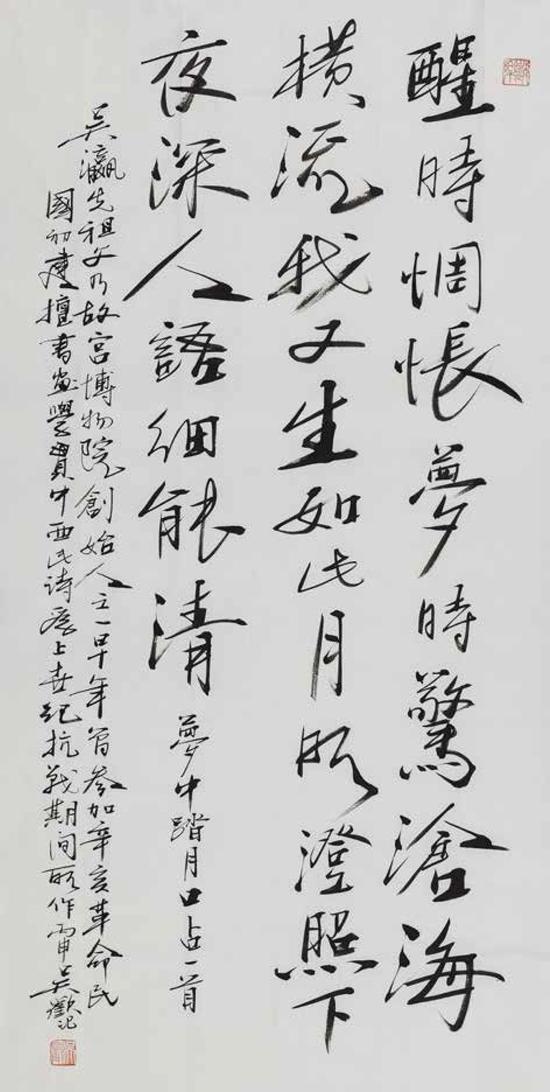 醒時惆悵夢時驚滄海
橫流我又生如此月明澄照下
夜深人語細能清 夢中踏月口占一首
吳瀛先祖父乃故宮博物院創始人之一早年曾參加辛亥革命民
國初建擅書畫學貫中西此詩為上世紀抗戰期間所作丙申吳歡記